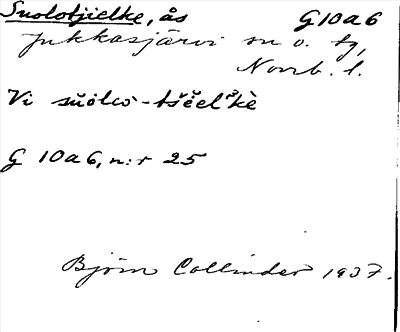 Suolotjielke, ås G10a6
Jukkasjärvi sn o. tg,
Norrb. l.
Vi sŭŏlω-tšĕĕl'kè
G 10a6, n:r 25
Björn Collinder 1937.